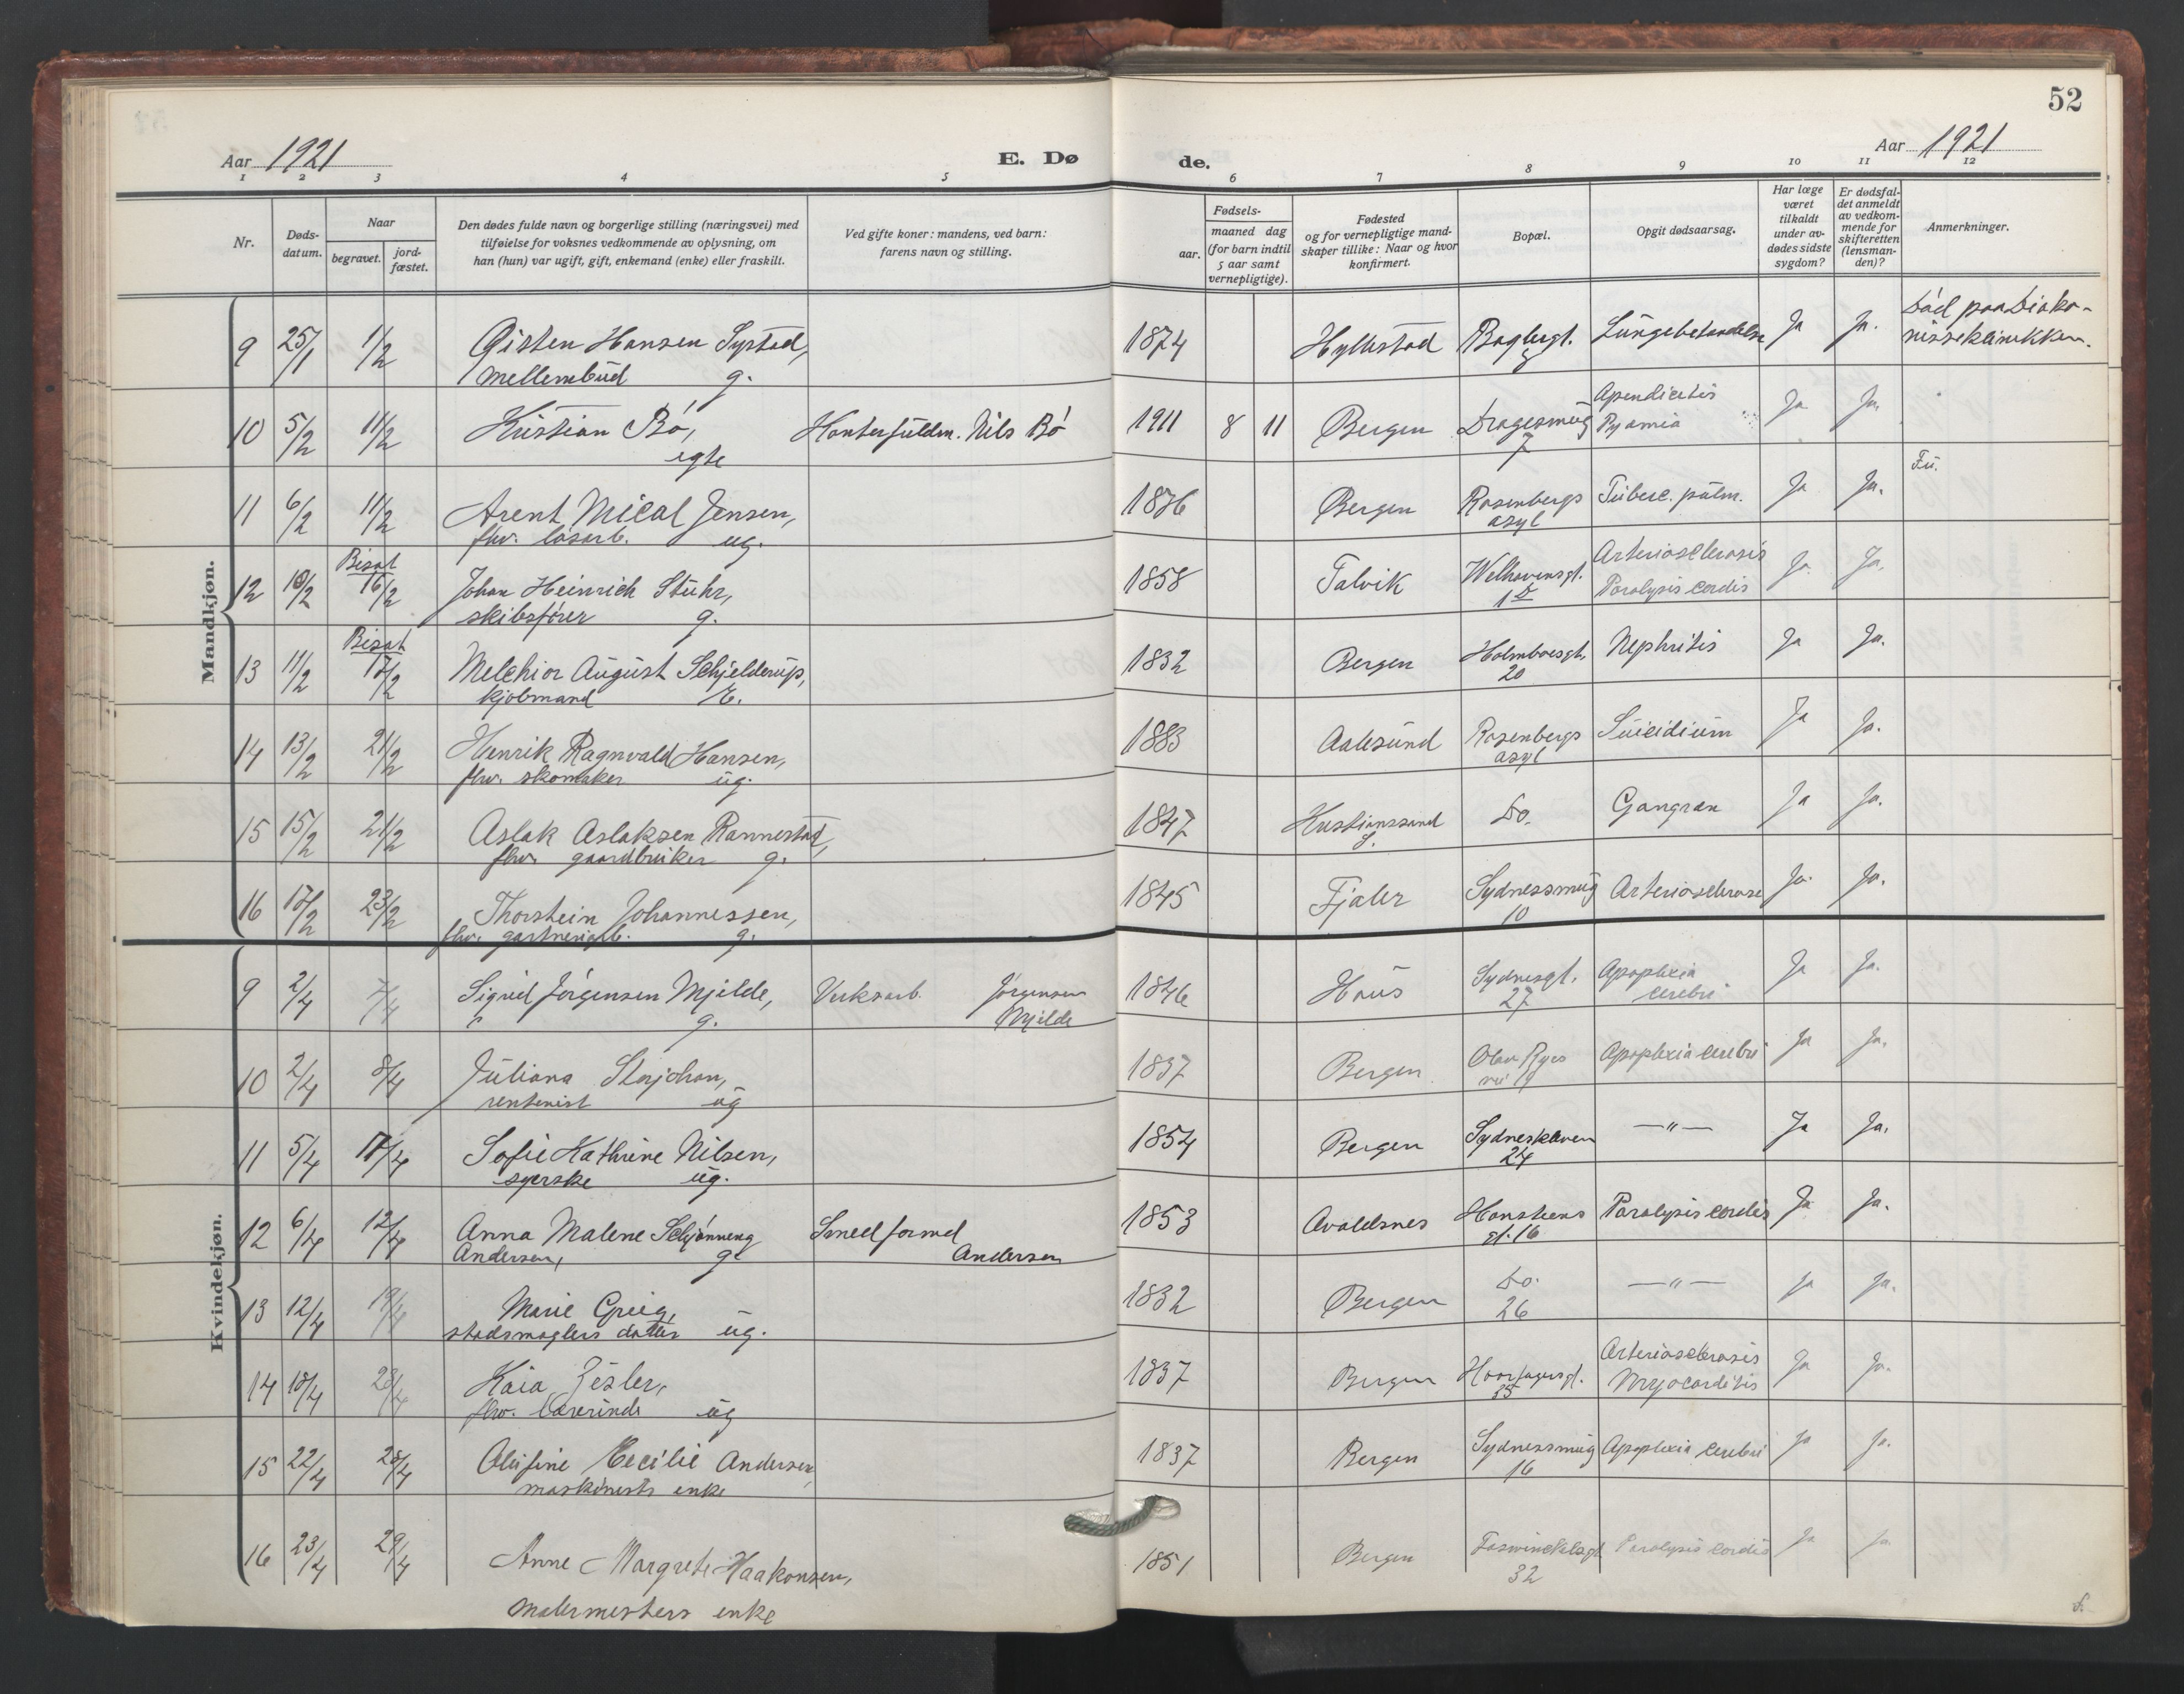 52
Aar 1921
E. Dø
de.
Aar 1921
1 2 3 4 5 6 7 8 9 10 11 12
Nr.
Døds-
datum.
Naar
begravet.
jord-
fæstet.
Den dødes fulde navn og borgerlige stilling (næringsvei) med
tilføielse for voksnes vedkommende av oplysning, om
han (hun) var ugift, gift, enkemand (enke) eller fraskilt.
Ved gifte koner: mandens, ved barn:
farens navn og stilling.
aar.
Fødsels-
maaned dag
(for barn indtil
5 aar samt
vernepligtige).
Fødested
og for vernepligtige mand-
skaper tillike: Naar og hvor
konfirmert.
Bopæl.
Opgit dødsaarsag.
Har læge
været
tilkaldt
under av-
dødes sidste
sygdom?
Er dødsfal-
det anmeldt
av vedkom-
mende for
skifteretten
(lensman-
den)?
Anmerkninger.
Mandkjøn.
9 25/1 1/2 Gisten Hansen Systad, 1874 Hyllestad Baglergt. Lungebetændelse Ja Ja. Død paa Diako-
mellembud g. nisseklinikken.
10 5/2 11/2 Kristian Bø, Kontorfuldm. Nils Bø 1911 8 11 Bergen Dragesmug Apendicitis Ja Ja.
egte 7 Pyamia
11 6/2 11/2 Arent Mical Jensen, 1876 Bergen Rosenbergs Tuberc. pulm. Ja Ja. Fu.
fhv. løsarb. ug. asyl
12 10/2 Bisat 16/2 Johan Heinrich Stuhr, 1858 Talvik Welhavensgt. Arteriosclerosis Ja Ja.
skibsfører g. Paralysis cordis
13 11/2 Bisat 17/2 Melchior August Schjelderup, 1832 Bergen Holmboesgt. Nephritis Ja Ja.
kjøbmand E. 20
14 13/2 21/2 Henrik Ragnvald Hansen, 1883 Aalesund Rosenbergs Suicidium Ja Ja.
fhv. skomaker ug. asyl
15 15/2 21/2 Aslak Aslaksen Rannestad, 1847 Kristianssand Do. Gangræn Ja Ja.
fhv. gaardbruker g. S.
16 17/2 23/2 Thorstein Johannessen, 1845 Fjaler Sydnessmug Arteriosclerose Ja. Ja.
fhv. gartneriarb. g. 10
Kvindekjøn.
9 2/4 7/4 Sigrid Jørgensen Mjelde, Verksarb. Jørgensen 1846 Haus Sydnesgt. Apoplexia Ja Ja.
g. Mjelde 27 cerebri
10 2/4 8/4 Juliana Storjohan, 1837 Bergen Olav Ryes Apoplexia cerebri Ja Ja.
rentenist ug vei 19
11 5/4 11/4 Sofie Kathrine Nilsen, 1854 Bergen Sydneskleven —"— Ja Ja.
syerske ug. 24
12 6/4 12/4 Anna Malene Schjønneng Smedformd 1853 Avaldsnes Hansteens Paralysis cordis Ja Ja.
Andersen, g. Andersen gt. 16
13 12/4 19/4 Marie Grieg, 1832 Bergen Do. —"— Ja Ja.
stadsmæglers datter ug. 26
14 18/4 23/4 Kaia Zesler, 1837 Bergen Haarfagersgt. Arteriosclerosis Ja Ja.
fhv. lærerinde ug 35 Myocarditis
15 22/4 28/4 Olufine Cecilie Andersen, 1837 Bergen Sydnessmug Apoplexia cerebri Ja Ja.
maskinists enke 16
16 23/4 29/4 Anne Margrete Haakonsen, 1851 Bergen Foswinckelsgt. Paralysis cordis Ja Ja
malermesters enke 32